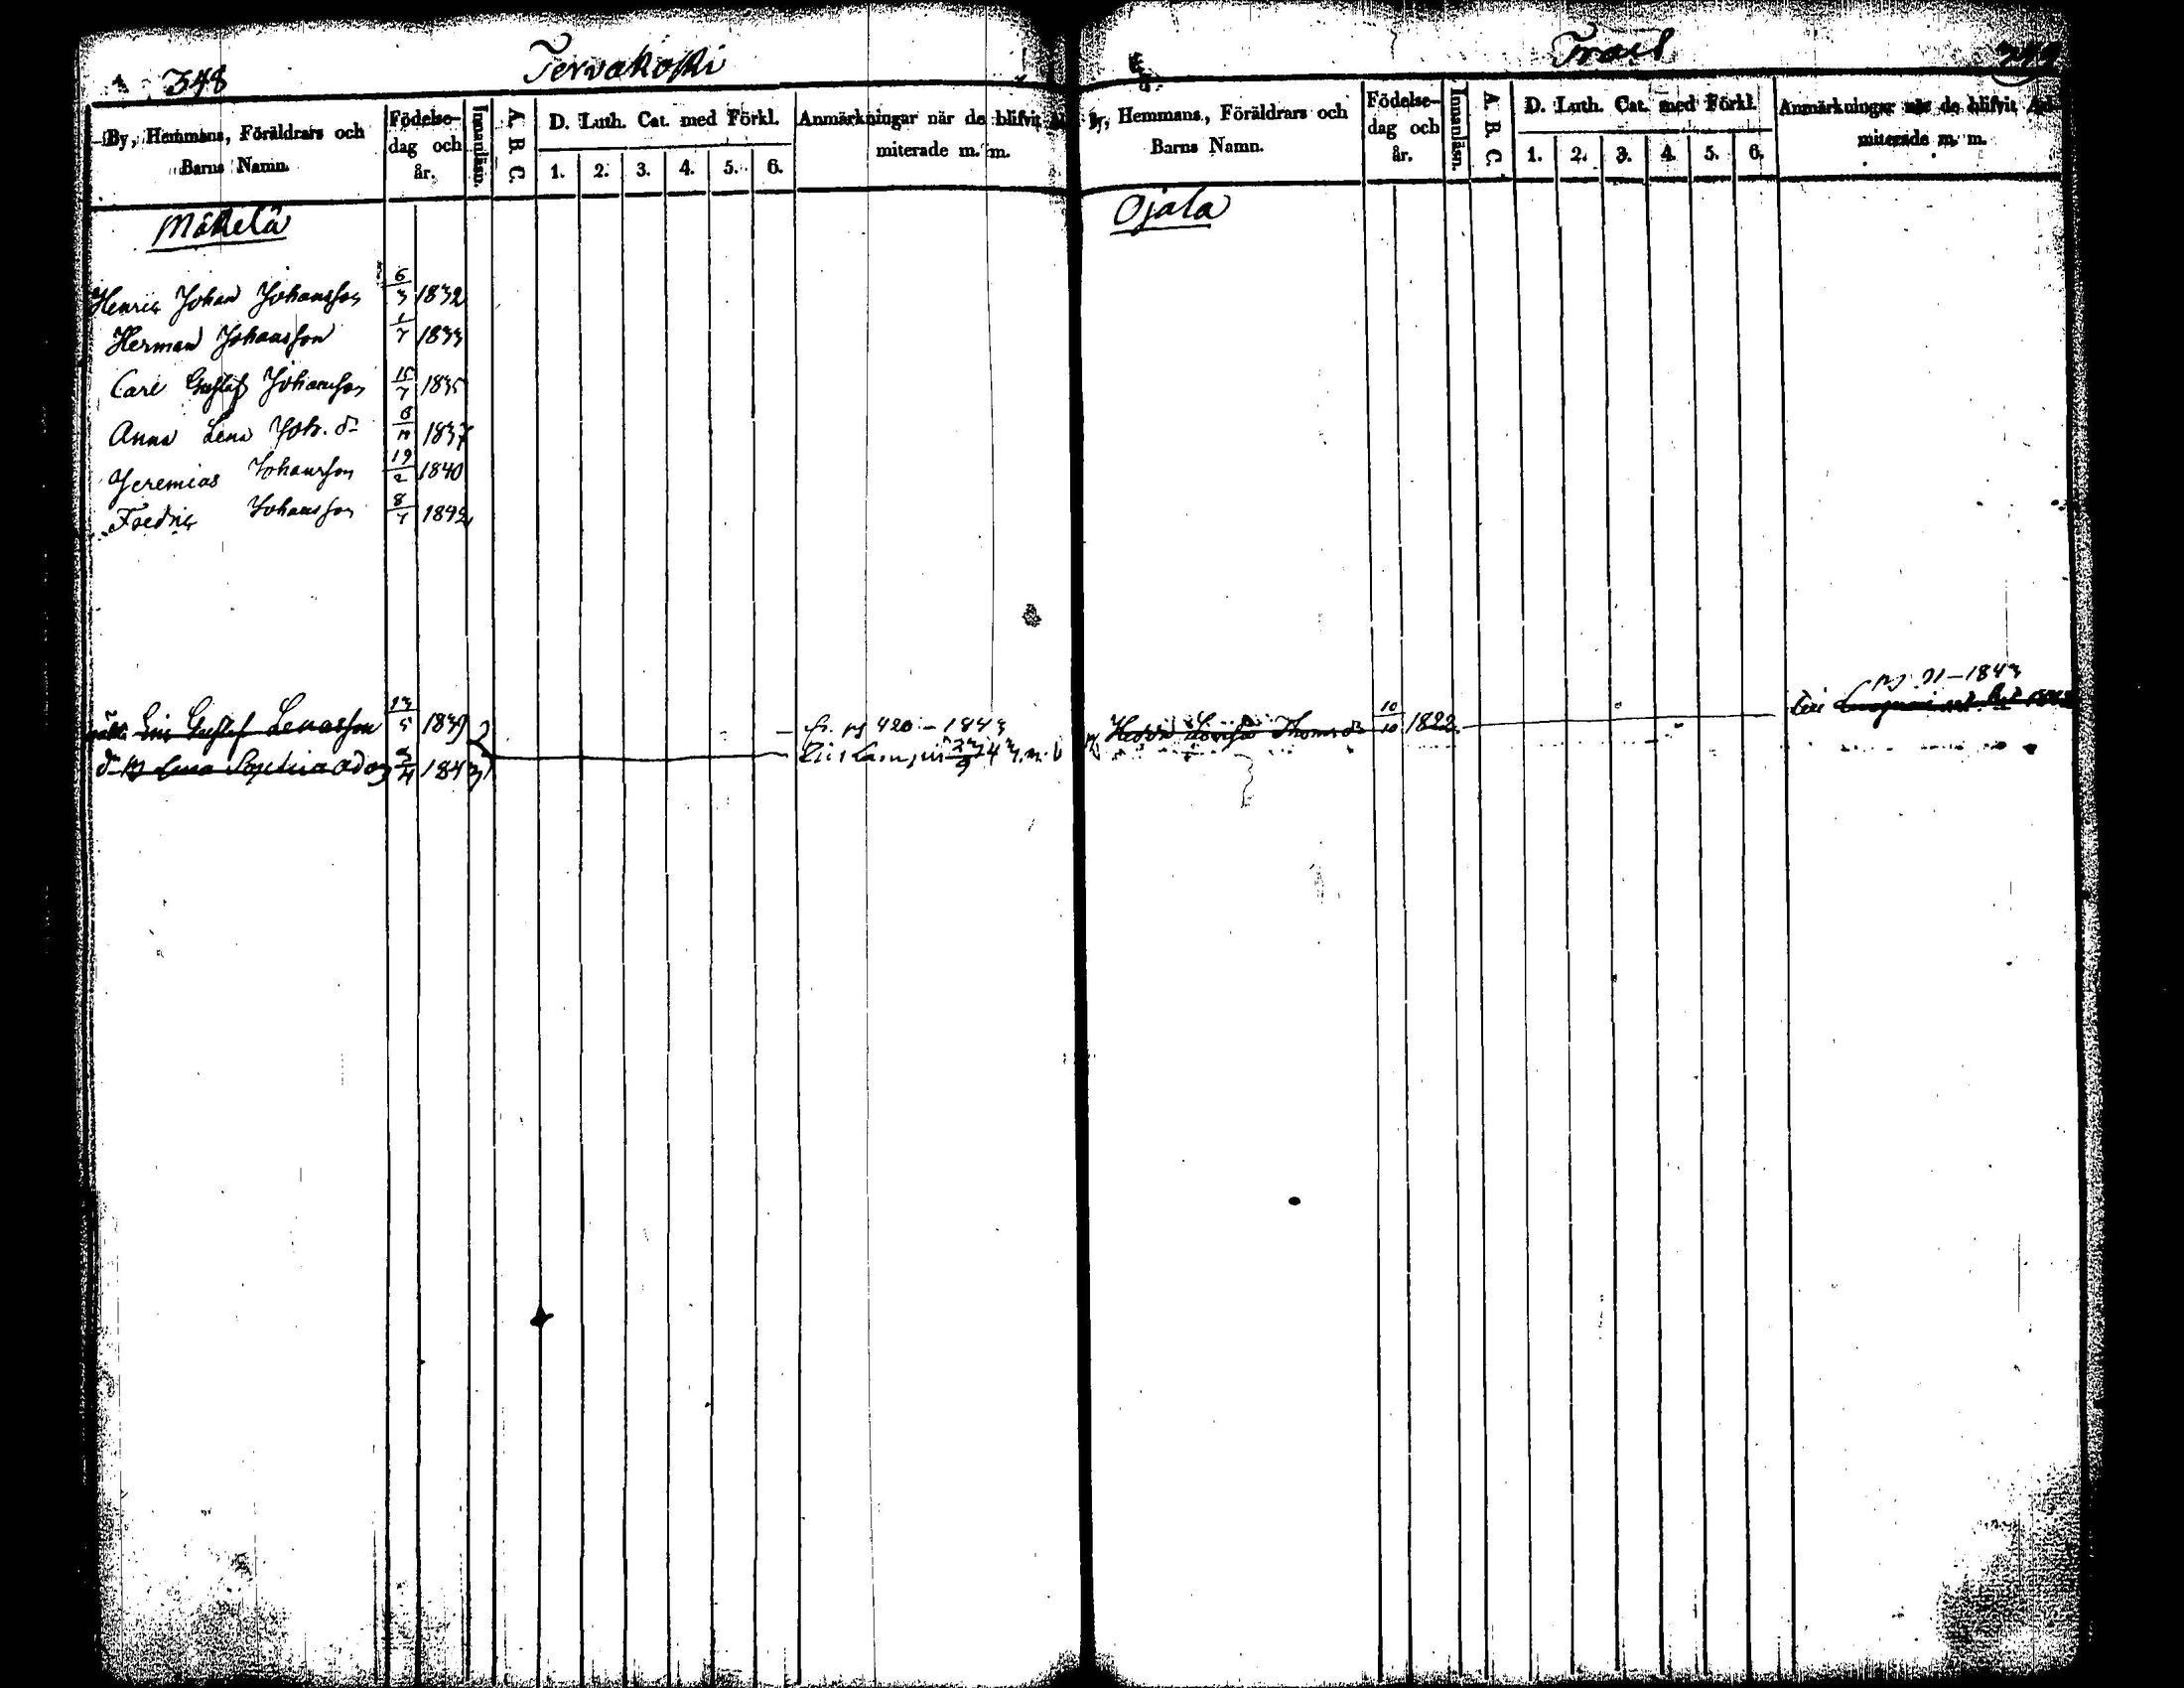 348
Tervakoski
By, Hemmans, Föräldrars och
Barns Namn.
Födelse-
dag och
år.
Innanläsn.
A B C.
D. Luth. Cat. med Förkl.
1. 2. 3. 4. 5. 6.
Anmärkningar när de blifvit
miterade m. m.
Mäkelä
Henric Johan Johansson 6/3 1832
Herman Johansson 1/7 1833
Carl Gustaf Johansson 15/7 1835
Anna Lena Joh. dr 1837
Jeremias Johansson 19/2 1840
Fredric Johansson 8/7 1842
Eric Gustaf Lenasson 13/5 1839
fr. pg 420 - 1843
Lena Sophia 1843
Träsk
349
By, Hemmans, Föräldrars och
Barns Namn.
Födelse-
dag och
år.
Innanläsn.
A B C.
D. Luth. Cat. med Förkl.
1. 2. 3. 4. 5. 6.
Anmärkningar när de blifvit Ad-
miterade m. m.
Ojala
1843
Hedda Lovisa Thomsdr 10/10 1822